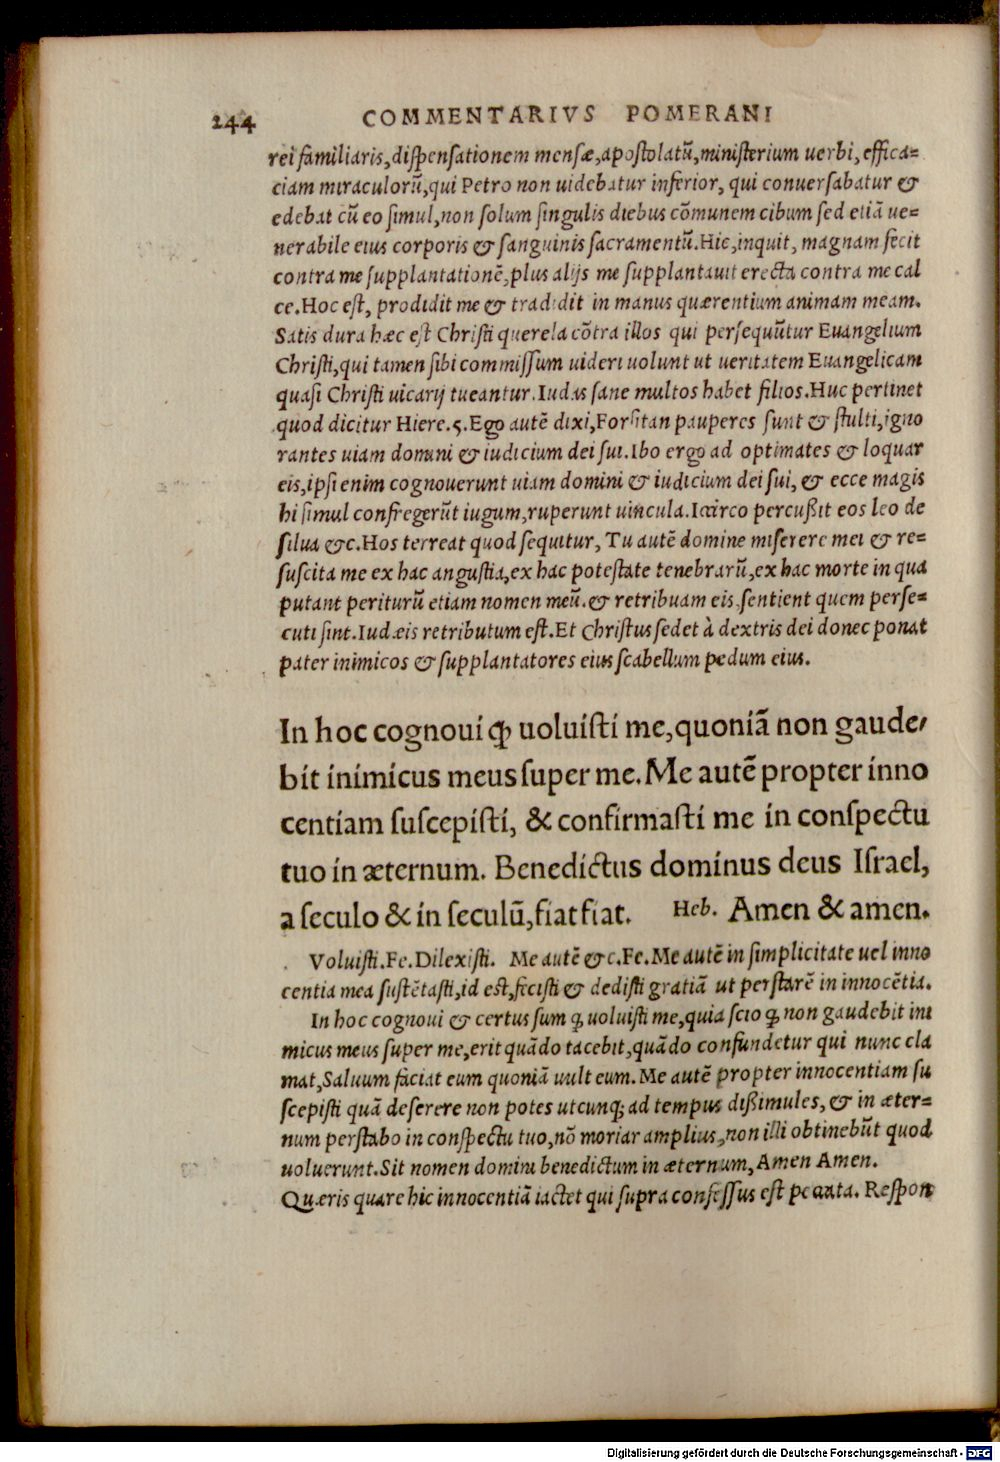 244 COMMENTARIVS POMERANI
rei familiaris,dispensationem mensæ,apostolatũ,ministerium uerbi,effica=
ciam miraculorũ,qui Petro non uidebatur inferior, qui conuersabatur &
edebat cũ eo simul,non solum singulis diebus cõmunem cibum sed etiã ue=
nerabile eius corporis & sanguinis sacramentũ.Hic,inquit, magnam fecit
contra me supplantationẽ,plus alijs me supplantauit erecta contra me cal
ce.Hoc est, prodidit me & tradidit in manus quærentium animam meam.
Satis dura hæc est Christi querela cõtra illos qui persequũtur Euangelium
Christi,qui tamen sibi commissum uideri uolunt ut ueritatem Euangelicam
quasi Christi uicarij tueantur.Iudas sane multos habet filios.Huc pertinet
quod dicitur Hiere.5.Ego autẽ dixi,Forsitan pauperes sunt & stulti,igno
rantes uiam domini & iudicium dei sui.Ibo ergo ad optimates & loquar
eis,ipsi enim cognouerunt uiam domini & iudicium dei sui, & ecce magis
hi simul confregerũt iugum,ruperunt uincula.Idcirco percußit eos leo de
silua &c.Hos terreat quod sequitur, Tu autẽ domine miserere mei & re=
suscita me ex hac angustia,ex hac potestate tenebrarũ,ex hac morte in qua
putant periturũ etiam nomen meũ.& retribuam eis,sentient quem perse=
cuti sint.Iudæis retributum est.Et Christus sedet à dextris dei donec ponat
pater inimicos & supplantatores eius scabellum pedum eius.
In hoc cognoui ꝙ uoluisti me,quoniã non gaude/
bit inimicus meus super me.Me autẽ propter inno
centiam suscepisti, & confirmasti me in conspectu
tuo in æternum. Benedictus dominus deus Israel,
a seculo & in seculũ,fiat fiat. Heb. Amen & amen.
Voluisti.Fe.Dilexisti. Me autẽ &c.Fe.Me autẽ in simplicitate uel inno
centia mea sustẽtasti,id est,fecisti & dedisti gratiã ut perstarẽ in innocẽtia.
In hoc cognoui & certus sum ꝙ uoluisti me,quia scio ꝙ non gaudebit ini
micus meus super me,erit quãdo tacebit,quãdo confundetur qui nunc cla
mat,Saluum faciat eum quoniã uult eum.Me autẽ propter innocentiam su
scepisti quã deserere non potes utcunqꝫ ad tempus dißimules, & in æter=
num perstabo in conspectu tuo,nõ moriar amplius,non illi obtinebũt quod
uoluerunt.Sit nomen domini benedictum in æternum,Amen Amen.
Quæris quare hic innocentiã iactet qui supra confessus est peccata. Respon
Digitalisierung gefördert durch die Deutsche Forschungsgemeinschaft - DFG